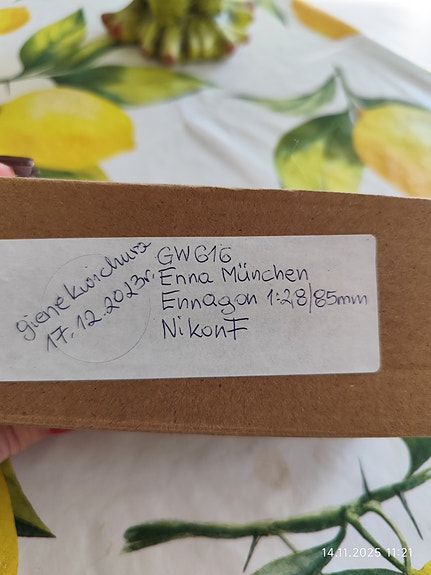 gienekwichura
17.12.2023r.
GW616
Enna München
Ennagon 1:2.8/85mm
Nikon F
14.11.2025 11:21